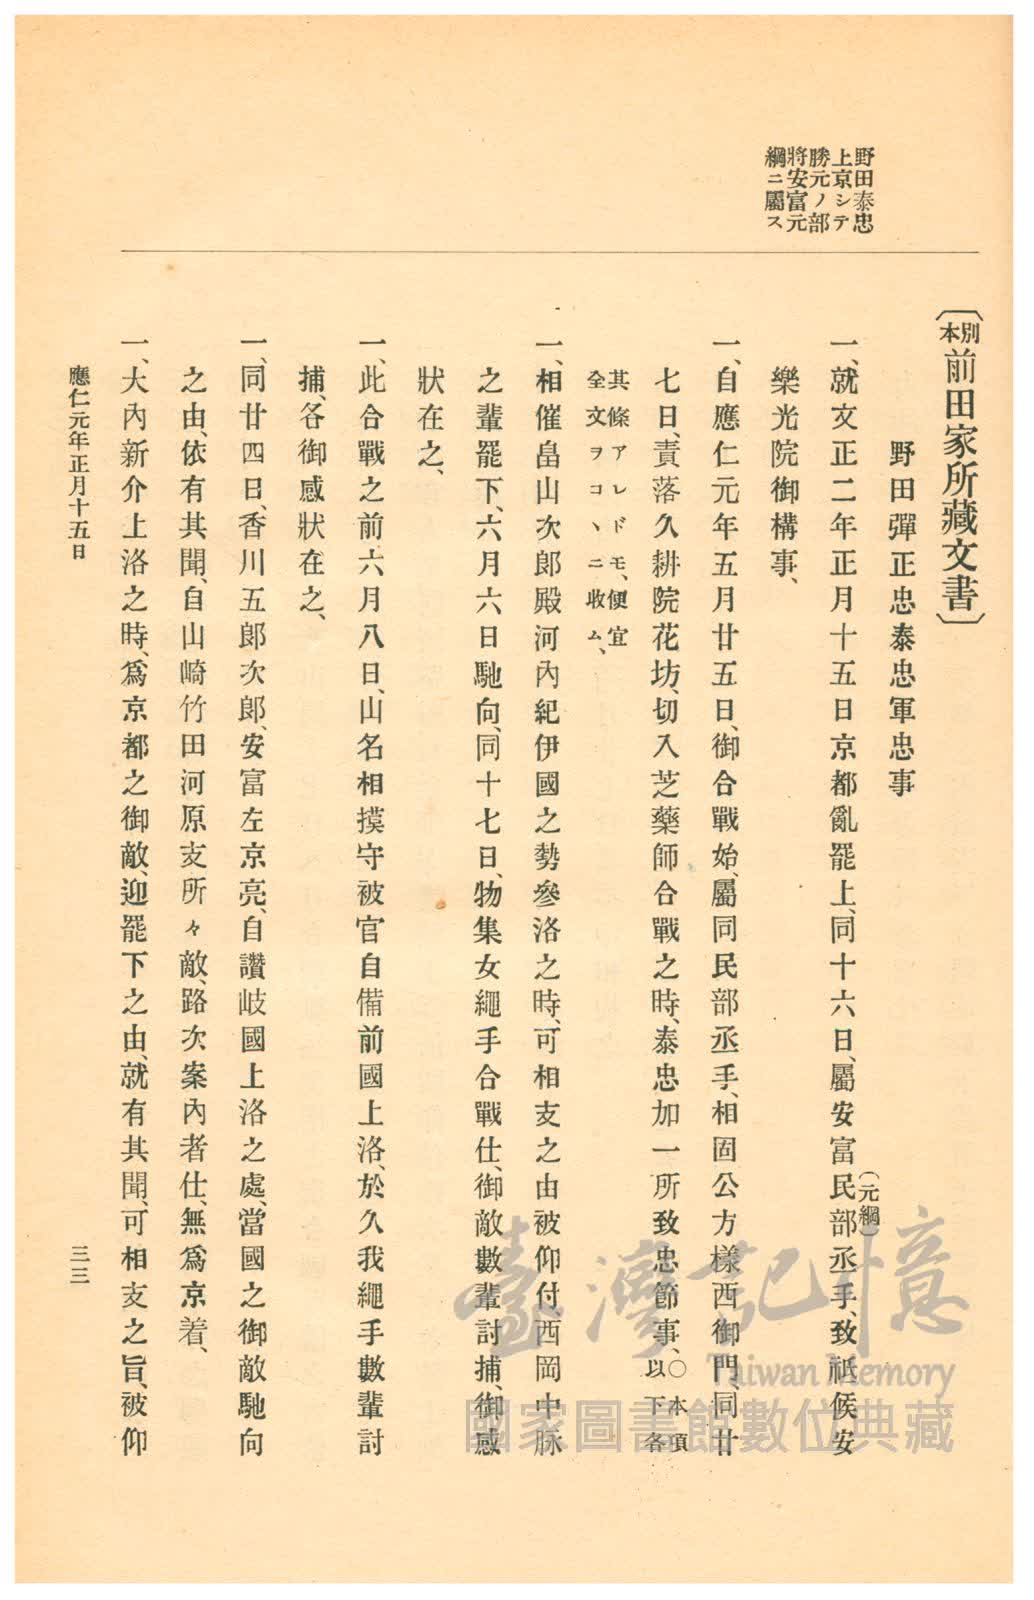 野田泰忠
上京シテ
勝元ノ部
將安富元
綱ニ屬ス
〔別本前田家所藏文書〕
野田彈正忠泰忠軍忠事
一、就文正二年正月十五日京都亂罷上、同十六日、屬安富民部丞手、致祗候安
(元綱)
樂光院御構事、
一、自應仁元年五月廿五日、御合戰始、屬同民部丞手、相固公方樣西御門、同廿
七日、責落久耕院花坊、切入芝藥師合戰之時、泰忠加一所致忠節事、○本項以下各
其條アレドモ、便宜
全文ヲコヽニ收ム、
一、相催畠山次郎殿河內紀伊國之勢參洛之時、可相支之由被仰付西岡中脉
之輩罷下、六月六日馳向、同十七日、物集女繩手合戰仕、御敵數輩討捕、御感
狀在之、
一、此合戰之前六月八日、山名相摸守被官自備前國上洛、於久我繩手數輩討
捕、各御感狀在之、
一、同廿四日、香川五郎次郎、安富左京亮、自讚岐國上洛之處、當國之御敵馳向
之由、依有其聞、自山崎竹田河原支所々敵、路次案內者仕、無爲京着、
一、大內新介上洛之時、爲京都之御敵、迎罷下之由、就有其聞、可相支之旨、被仰
應仁元年正月十五日
三三
臺灣記憶
Taiwan Memory
國家圖書館數位典藏